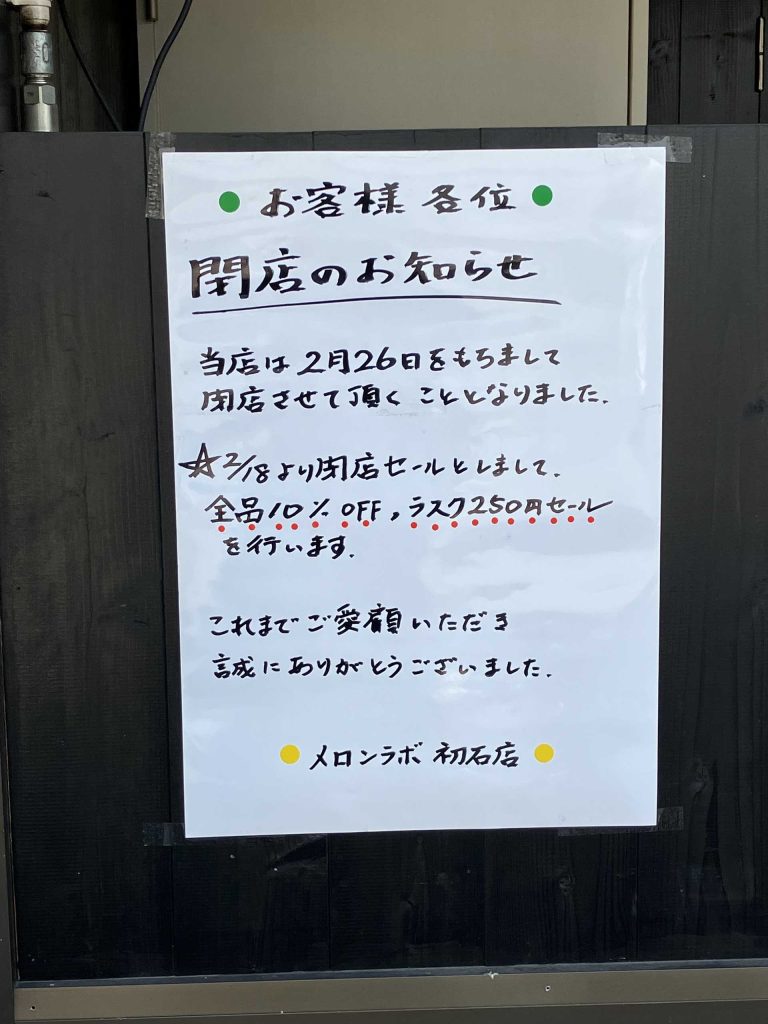 お客様 各位
閉店のお知らせ
当店は2月26日をもちまして
閉店させて頂くこととなりました.
☆2/18より閉店セールとしまして、
全品10% OFF, ラスク250円セール
を行います.
これまでご愛顧いただき
誠にありがとうございました.
メロンラボ 初石店